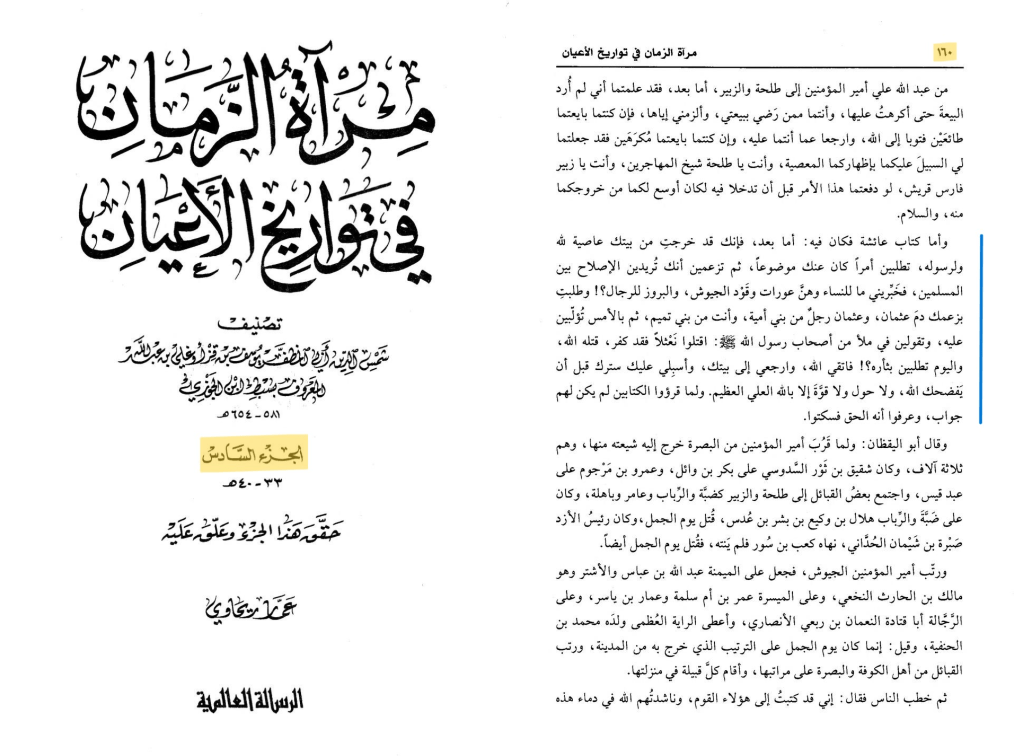 مرآة الزمان في تواريخ الأعيان
١٦٠
من عبد الله علي أمير المؤمنين إلى طلحة والزبير، أما بعد، فقد علمتما أني لم أُرد
البيعةَ حتى أكرهتُ عليها، وأنتما ممن رَضي ببيعتي، وألزمني إياها، فإن كنتما بايعتما
طائعَيْن فتوبا إلى الله، وارجعا عما أنتما عليه، وإن كنتما بايعتما مُكرَهَين فقد جعلتما
لي السبيلَ عليكما بإظهاركما المعصية، وأنت يا طلحة شيخ المهاجرين، وأنت يا زبير
فارس قريش، لو دفعتما هذا الأمر قبل أن تدخلا فيه لكان أوسع لكما من خروجكما
منه، والسلام.
وأما كتاب عائشة فكان فيه: أما بعد، فإنك قد خرجتِ من بيتك عاصية لله
ولرسوله، تطلبين أمراً كان عنك موضوعاً، ثم تزعمين أنك تُريدين الإصلاح بين
المسلمين، فخَبِّريني ما للنساء وهنَّ عورات وقَوْد الجيوش، والبروز للرجال؟! وطلبتِ
بزعمك دمَ عثمان، وعثمان رجلٌ من بني أمية، وأنت من بني تميم، ثم بالأمس تُؤلّبين
عليه، وتقولين في ملأ من أصحاب رسول الله ﷺ: اقتلوا نَعْثلاً فقد كفر، قتله الله،
واليوم تطلبين بثأره؟! فاتقي الله، وارجعي إلى بيتك، وأسبِلي عليك سترك قبل أن
يَفضحك الله، ولا حول ولا قوَّةَ إلا بالله العلي العظيم. ولما قرؤوا الكتابين لم يكن لهم
جواب، وعرفوا أنه الحق فسكتوا.
وقال أبو اليقظان: ولما قَرُبَ أمير المؤمنين من البصرة خرج إليه شيعته منها، وهم
ثلاثة آلاف، وكان شقيق بن ثَوْر السَّدوسي على بكر بن وائل، وعمرو بن مَرْجوم على
عبد قيس، واجتمع بعضُ القبائل إلى طلحة والزبير كضبَّة والرِّباب وعامر وباهلة، وكان
على ضَبَّةَ والرِّباب هلال بن وكيع بن بشر بن عُدس، قُتل يوم الجمل، وكان رئيسُ الأزد
صَبْرة بن شَيْمان الحُدَّاني، نهاه كعب بن سُور فلم يَنته، فقُتل يوم الجمل أيضاً.
ورتّب أمير المؤمنين الجيوش، فجعل على الميمنة عبد الله بن عباس والأشتر وهو
مالك بن الحارث النخعي، وعلى الميسرة عمر بن أم سلمة وعمار بن ياسر، وعلى
الرَّجَّالة أبا قتادة النعمان بن ربعي الأنصاري، وأعطى الراية العُظمى ولدَه محمد بن
الحنفية، وقيل: إنما كان يوم الجمل على الترتيب الذي خرج به من المدينة، ورتب
القبائل من أهل الكوفة والبصرة على مراتبها، وأقام كلَّ قبيلة في منزلتها.
ثم خطب الناس فقال: إني قد كتبتُ إلى هؤلاء القوم، وناشدتُهم الله في دماء هذه
مِرْآةُ الزَّمَانِ
فِي تَوَارِيخِ الأَعْيَانِ
تصنيف
شمس الدين أبي المظفر يوسف بن قزأوغلي بن عبد الله
المعروف بسبط ابن الجوزي
٥٨١ - ٦٥٤هـ
الجزء السادس
٣٣ - ٤٠هـ
حَقَّقَ هَذَا الجُزْءَ وَعَلَّقَ عَلَيْهِ
عمار ريحاوي
الرسالة العالمية